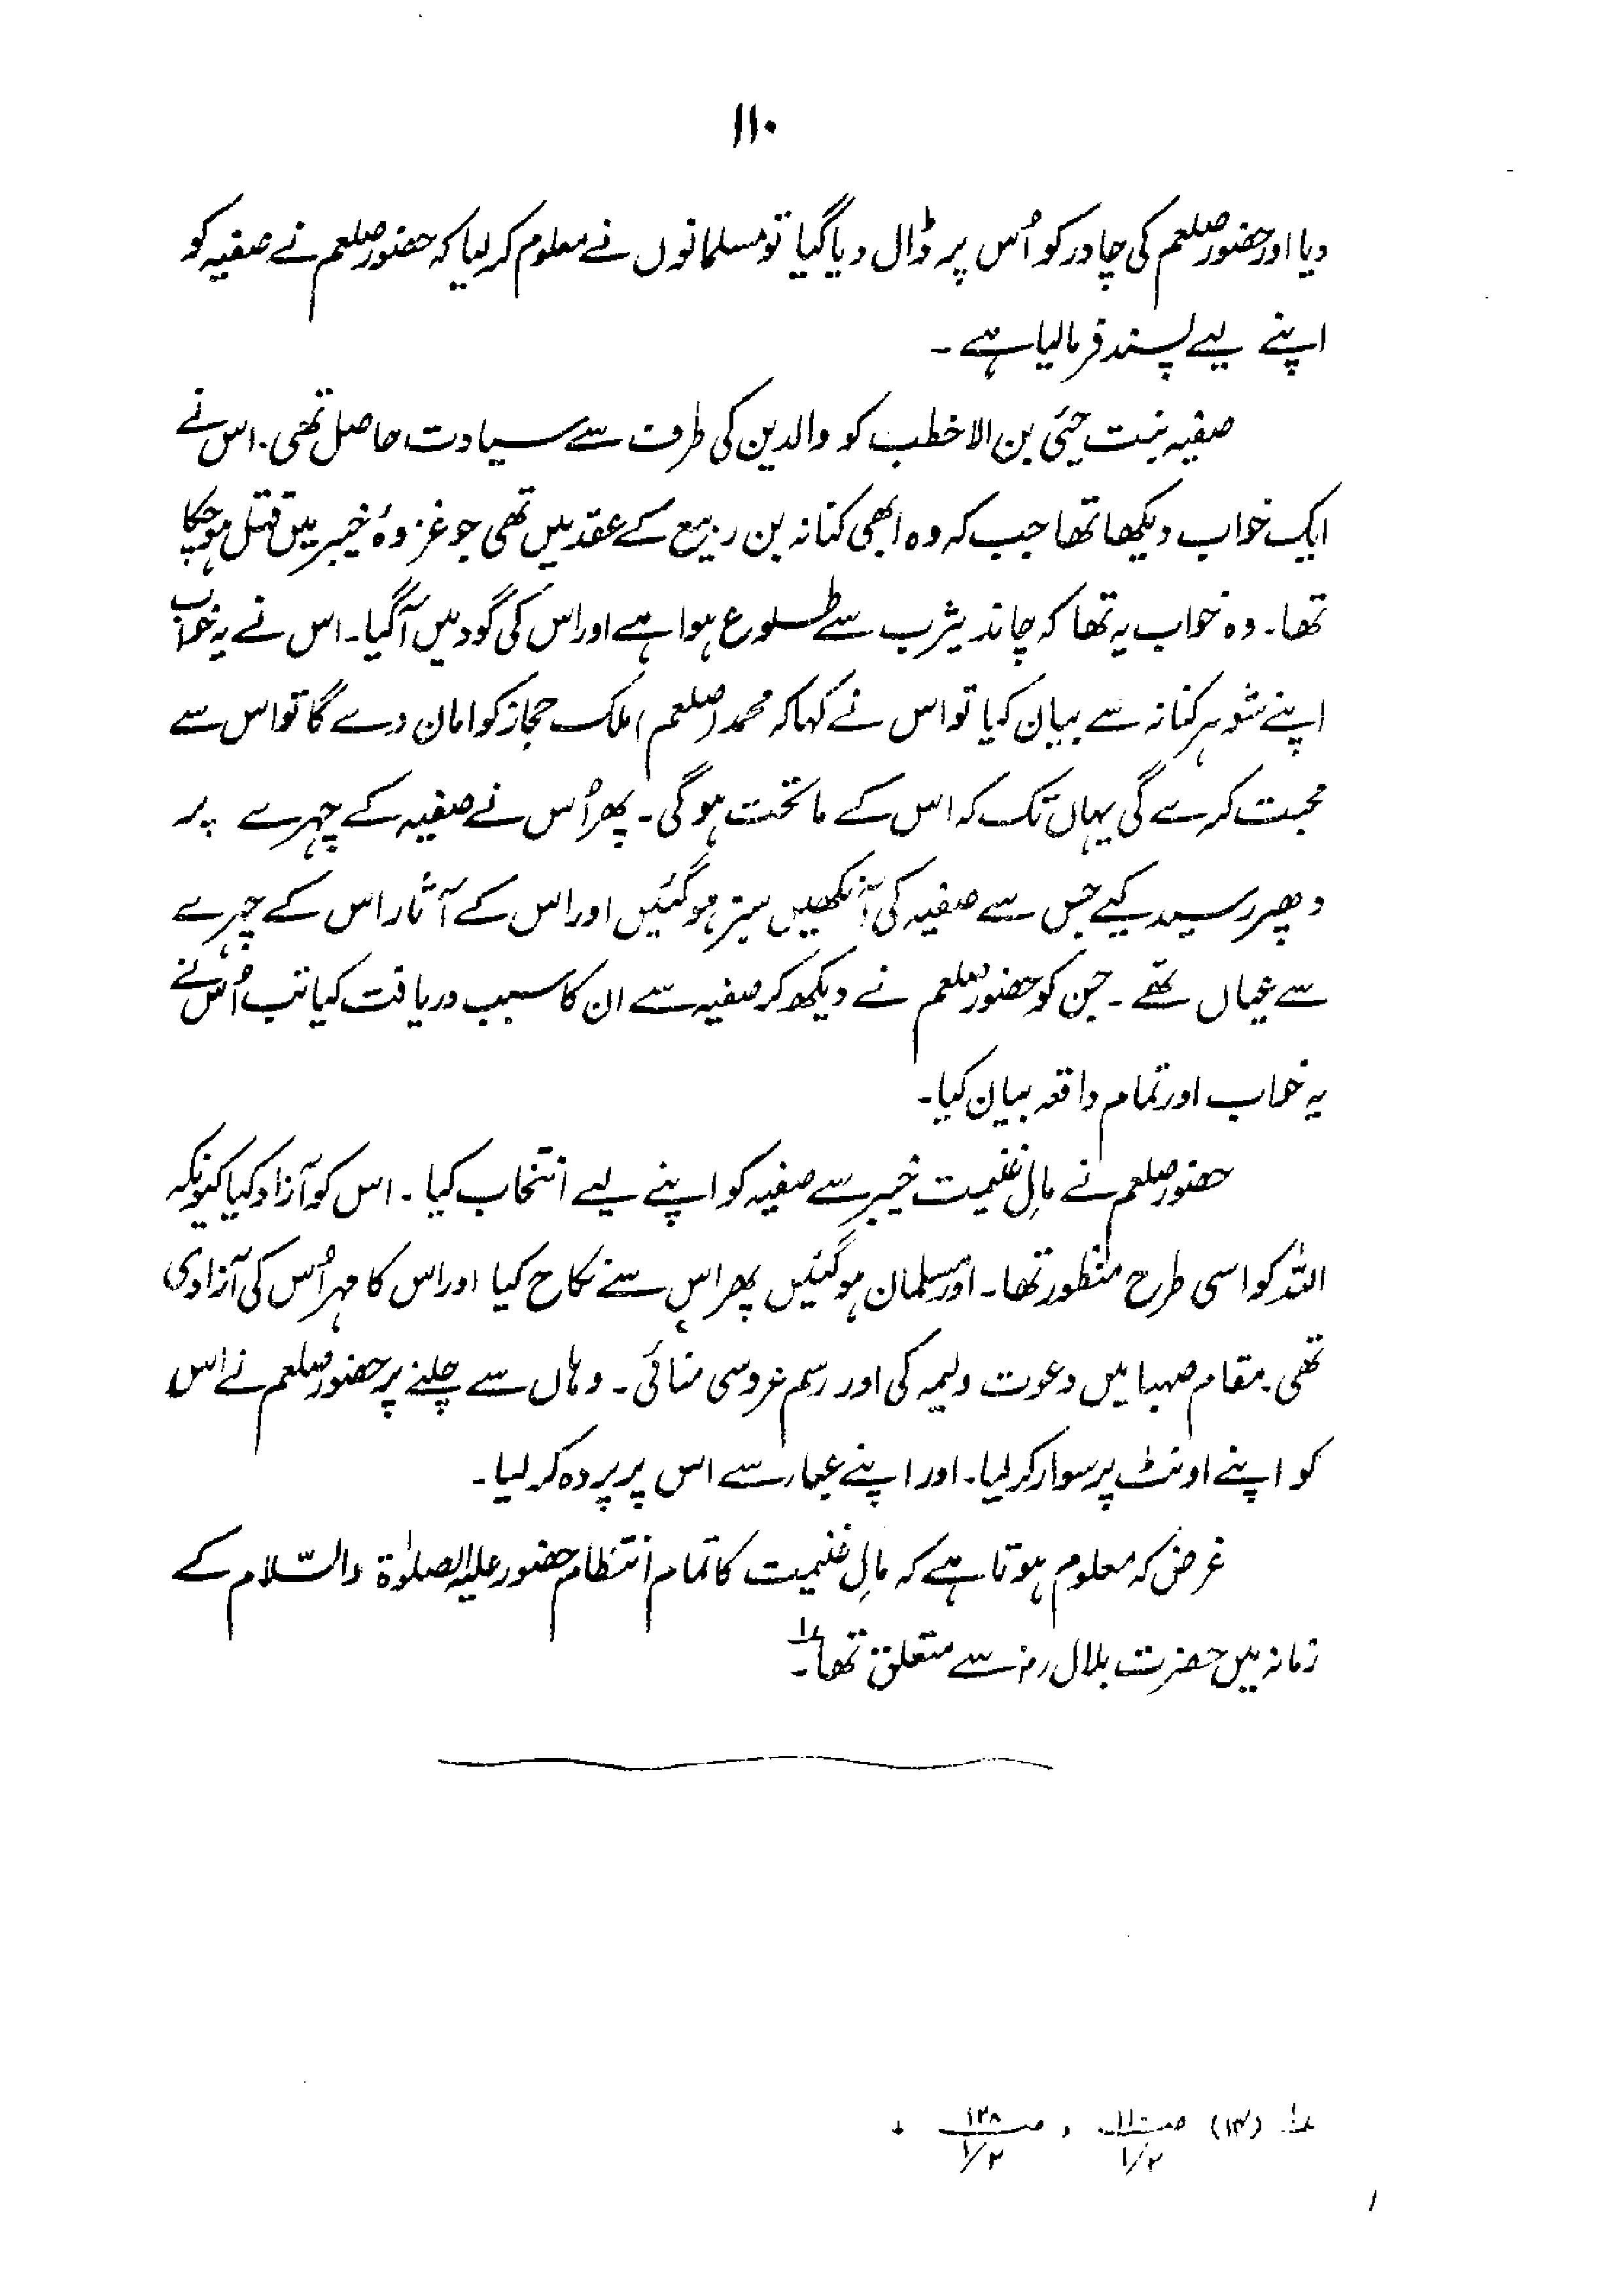 ۱۱۰
دیا اور حضور صلعم کی چادر کو اُس پر ڈال دیا گیا تو مسلمانوں نے معلوم کر لیا کہ حضور صلعم نے صفیہ کو
اپنے لیے پسند فرما لیا ہے ۔
صفیہ بنت حیّ بن الاخطب کو والدین کی طرف سے سیادت حاصل تھی ۔ اس نے
ایک خواب دیکھا تھا جب کہ وہ ابھی کنانہ بن ربیع کے عقد میں تھی جو غزوۂ خیبر میں قتل ہو چکا
تھا ۔ وہ خواب یہ تھا کہ چاند یثرب سے طلوع ہوا ہے اور اس کی گود میں آ گیا ۔ اس نے یہ خواب
اپنے شوہر کنانہ سے بیان کیا تو اس نے کہا کہ محمد (صلعم) ملک حجاز کو امان دے گا تو اس سے
محبت کرے گی یہاں تک کہ اس کے ماتحت ہو گی ۔ پھر اُس نے صفیہ کے چہرے پر
دھپر رسید کیے جس سے صفیہ کی آنکھیں سبز ہو گئیں اور اس کے آثار اس کے چہرے
سے عیاں تھے ۔ جن کو حضور صلعم نے دیکھ کر صفیہ سے ان کا سبب دریافت کیا تب اُس نے
یہ خواب اور تمام واقعہ بیان کیا ۔
حضور صلعم نے مالِ غنیمت خیبر سے صفیہ کو اپنے لیے انتخاب کیا ۔ اس کو آزاد کیا کیونکہ
اللہ کو اسی طرح منظور تھا ۔ اور مسلمان ہو گئیں پھر اس سے نکاح کیا اور اس کا مہر اُس کی آزادی
تھی ۔ مقام صہبا میں دعوت ولیمہ کی اور رسم عروسی منائی ۔ وہاں سے چلنے پر حضور صلعم نے اس
کو اپنے اونٹ پر سوار کر لیا ۔ اور اپنے عباء سے اس پر پردہ کر لیا ۔
غرض کہ معلوم ہوتا ہے کہ مالِ غنیمت کا تمام انتظام حضور علیہ الصلوٰۃ والسّلام کے
زمانہ میں حضرت بلال رضؓ سے متعلق تھا ۔ ۱؎
۱؎ (۱۳) صـ ۱۱۰ / ۱/۲ ، صـ ۱۲۸ / ۱/۲